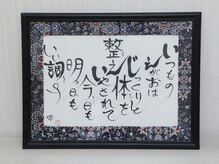 いつもの
えがおは
じっくりと
体を
整え
いやされて
今日も
明日も
い調